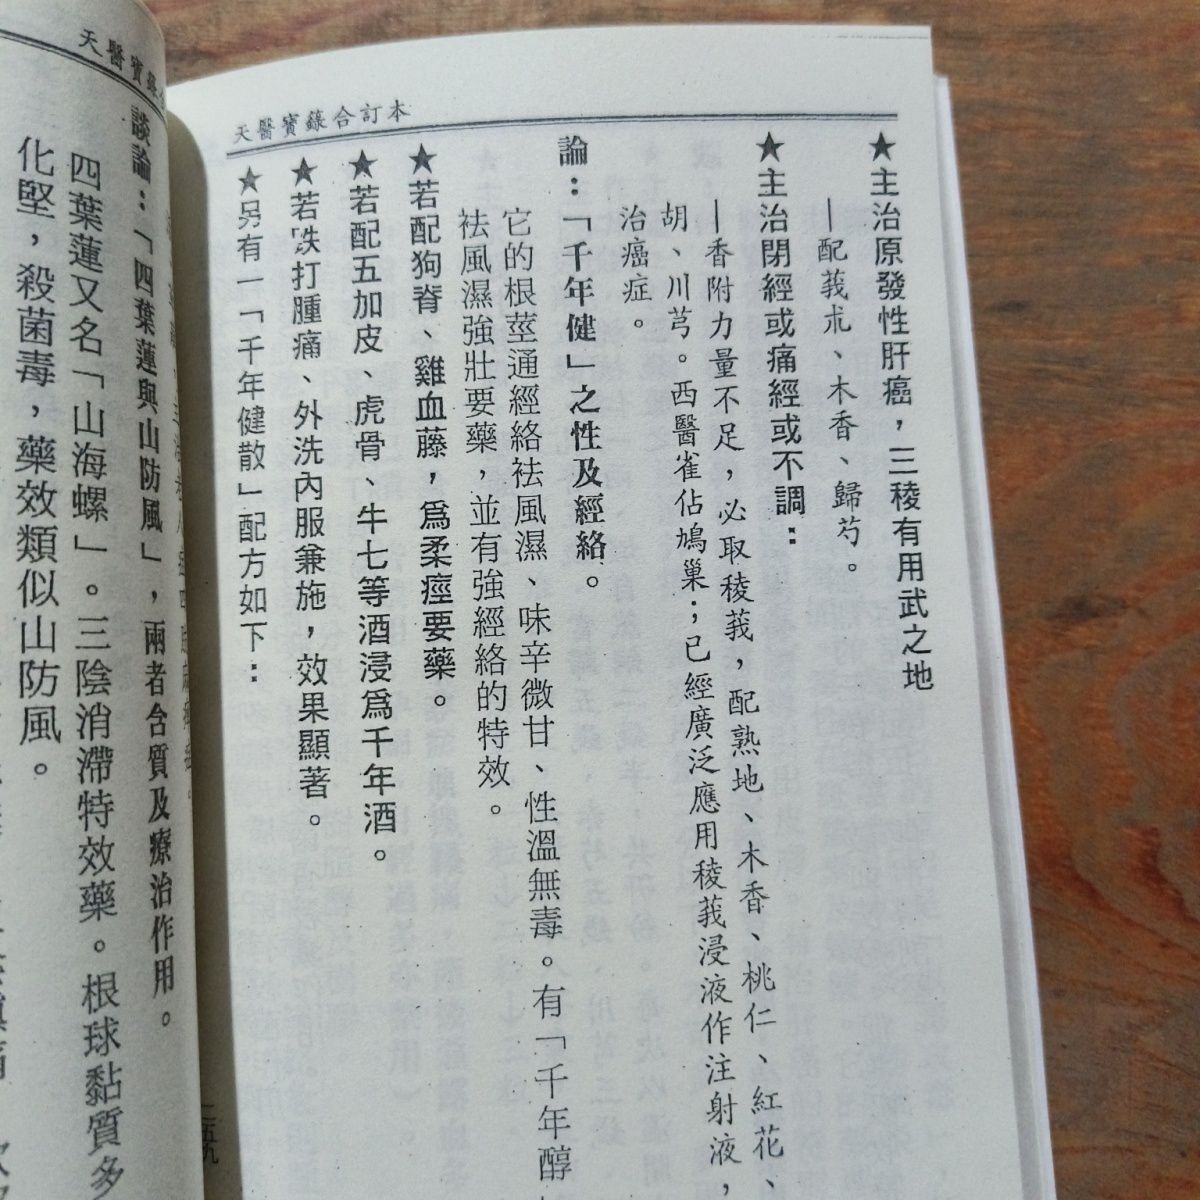 天醫寶錄合訂本
★主治原發性肝癌，三稜有用武之地
—配莪朮、木香、歸芍。
★主治閉經或痛經或不調：
—香附力量不足，必取稜莪，配熟地、木香、桃仁、紅花、
胡、川芎。西醫雀佔鳩巢；已經廣泛應用稜莪浸液作注射液，
治癌症。
論：「千年健」之性及經絡。
它的根莖通經絡祛風濕、味辛微甘、性溫無毒。有「千年醇
祛風濕強壯要藥，並有強經絡的特效。
★若配狗脊、雞血藤，爲柔痙要藥。
★若配五加皮、虎骨、牛七等酒浸爲千年酒。
★若跌打腫痛、外洗內服兼施，效果顯著。
★另有一「千年健散」配方如下：
天醫寶錄
談論：「四葉蓮與山防風」，兩者含質及療治作用。
四葉蓮又名「山海螺」。三陰消滯特效藥。根球黏質多
化堅，殺菌毒，藥效類似山防風。
二五九